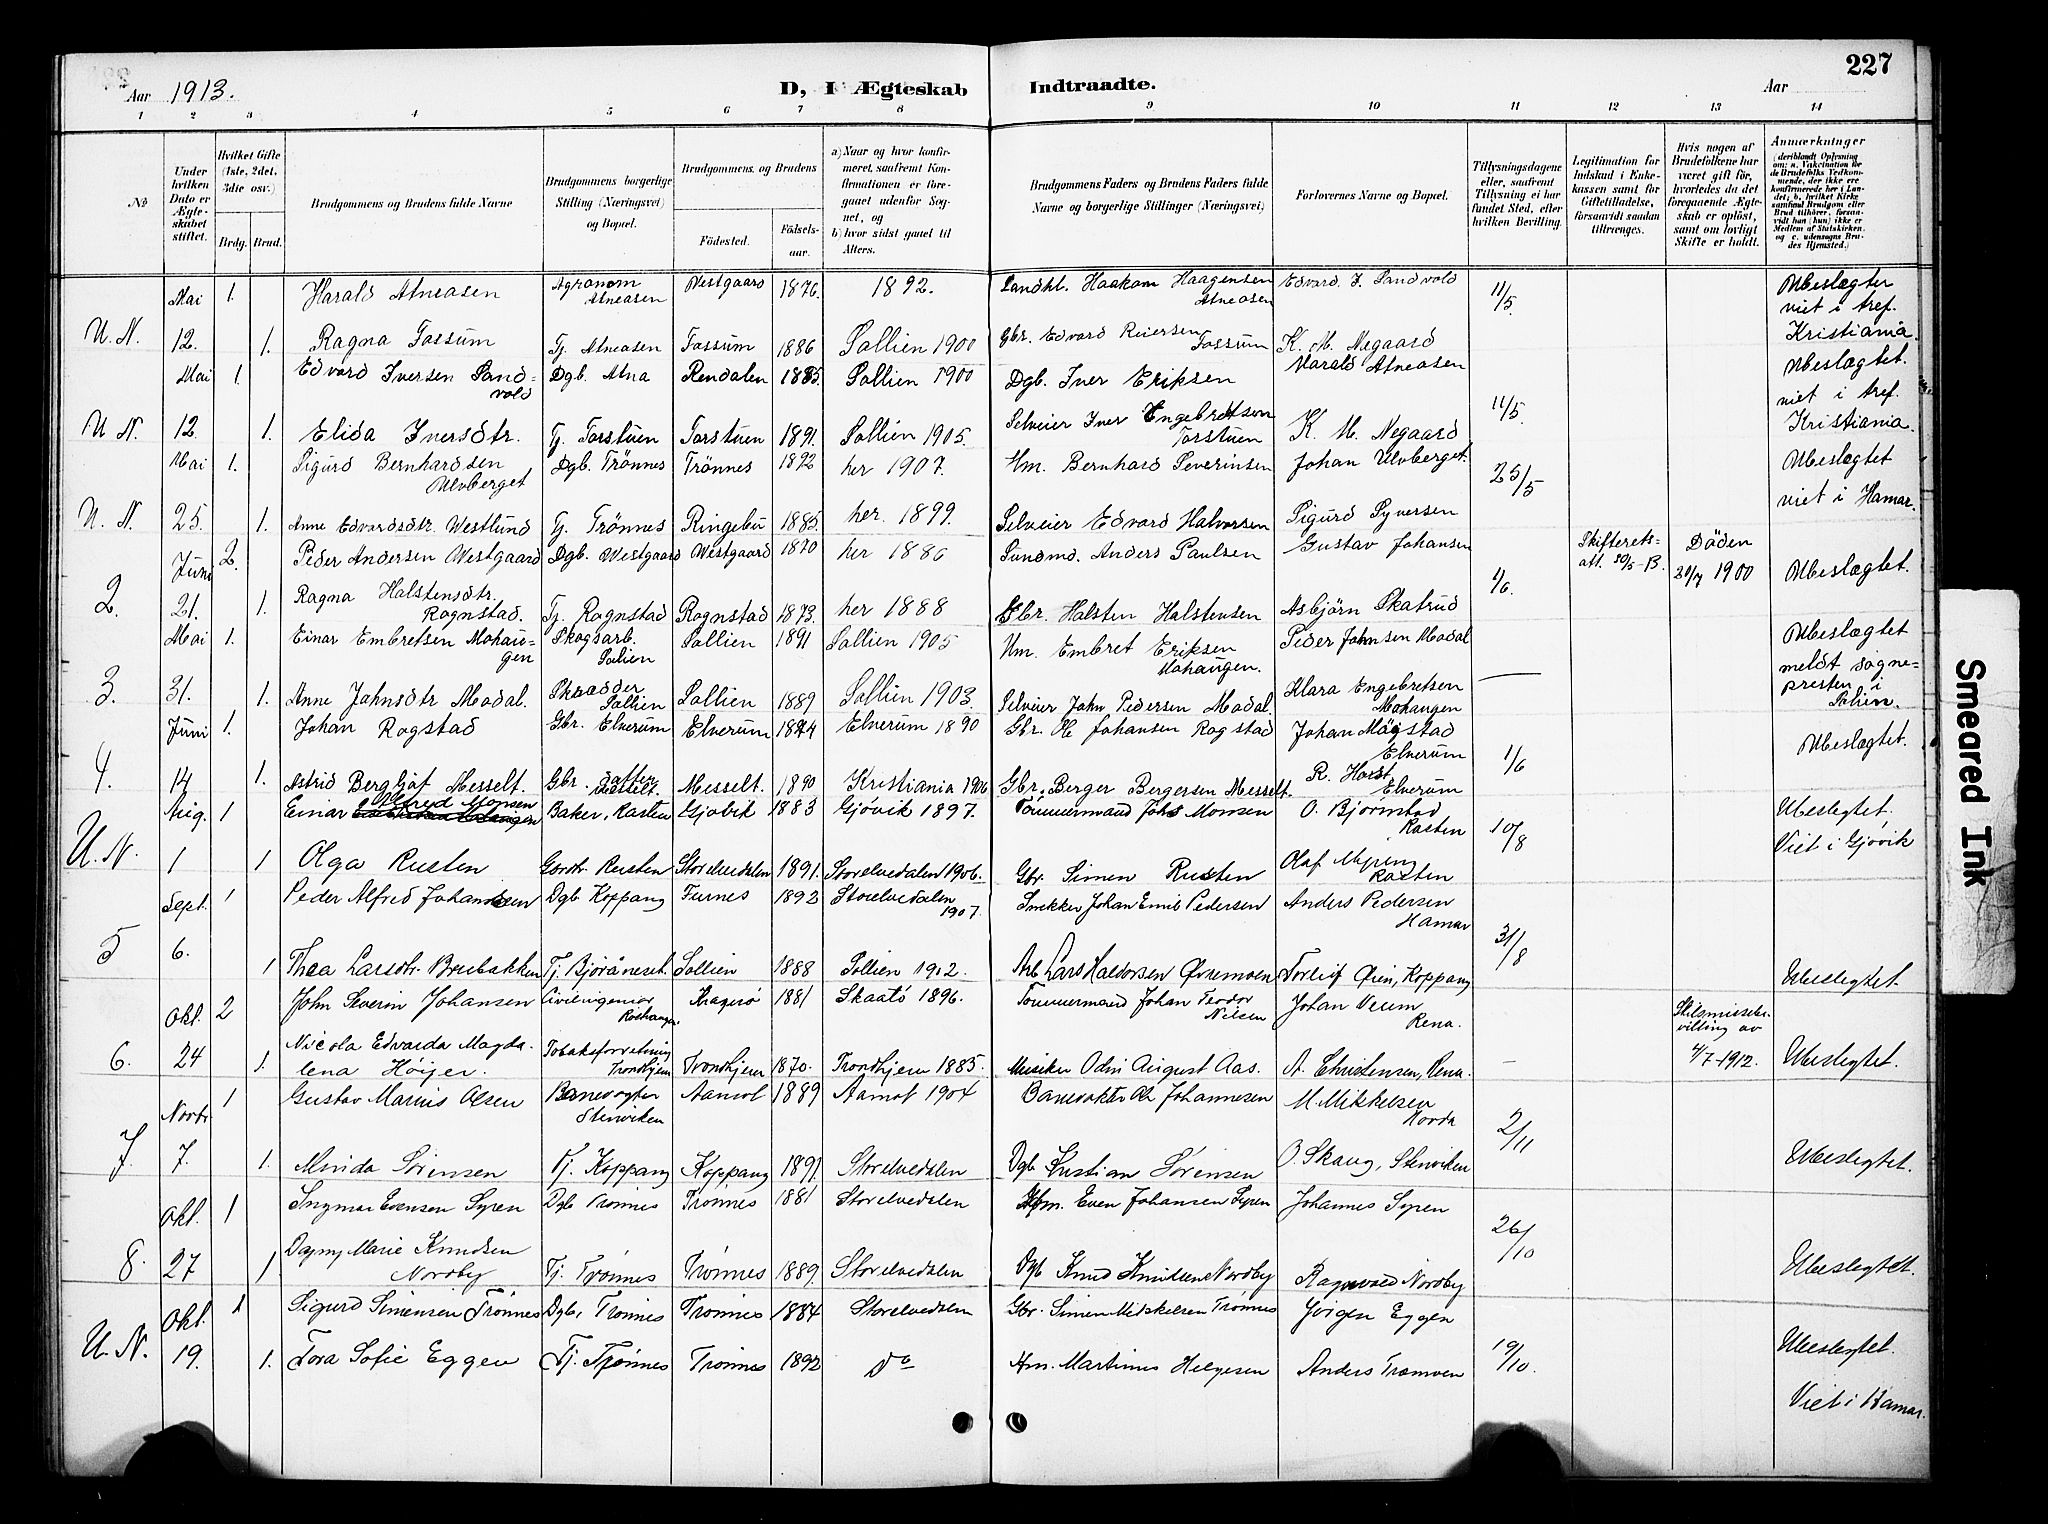 227
Aar 1913.
D, I Ægteskab Indtraadte.
Aar
1 2 3 4 5 6 7 8 9 10 11 12 13 14
No
Under hvilken Dato er Ægteskabet stiftet.
Hvilket Gifte (1ste, 2det, 3die osv.)
Brdg. Brud.
Brudgommens og Brudens fulde Navne
Brudgommens borgerlige Stilling (Næringsvei) og Bopæl.
Brudgommens og Brudens
Fødested. Fødselsaar.
a) Naar og hvor konfirmeret, saafremt Konfirmationen er foregaaet udenfor Sognet, og
b) hvor sidst gaaet til Alters.
Brudgommens Faders og Brudens Faders fulde Navne og borgerlige Stillinger (Næringsvei)
Forlovernes Navne og Bopæl.
Tillysningsdagene eller, saafremt Tillysning ei har fundet Sted, efter hvilken Bevilling.
Legitimation for Indskud i Enkekassen samt for Giftetilladelse, forsaavidt saadan tiltrænges.
Hvis nogen af Brudefolkene har været gift før, hvorledes da det foregaaende Ægteskab er opløst, samt om lovligt Skifte er holdt.
Anmærkninger
(deriblandt Oplysning om: a. Vakcination for de Brudefolks Vedkommende, der ikke ere konfirmerede her i Landet; b. hvilket Kirkesamfund Brudgom eller Brud tilhører, forsaavidt han (hun) ikke er Medlem af Statskirken, og c. udensogns Brudes Hjemsted.)
Mai 1. Harald Atneosen Agronom Atneosen Westgaard 1876. 1892. Landhl. Haakom Haagensen Atneosen Edvard I. Sandvold 11/5. Ubeslægtet viet i tref. Kristiania
U.N. 12. 1. Ragna Fossum Tj. Atneosen Fossum 1886 Sollien 1900 Gbr. Edvard Reiersen Fossum K. M. Negaard
Mai 1. Edvard Iversen Sandvold Dgb. Atna Rendalen 1885. Sollien 1900 Dgb. Iver Eriksen Harald Atneosen 11/5. Ubeslægtet. viet i tref. Kristiania.
U.N. 12. 1. Elida Iversdtr. Tj. Torstuen Torstuen 1891. Sollien 1905. Selveier Iver Engebretsen Torstuen K. M. Negaard
Mai 1. Sigurd Bernhardsen Ulvberget Dgb. Trönnes Trönnes 1892 her 1907. Hm. Bernhard Severinsen Johan Ulvberget. 25/5 Ubeslægtet viet i Hamar.
U.N. 25. 1. Anne Edvardsdtr. Westlund Tj. Trönnes Ringebu 1885. her. 1899. Selveier Edvard Halvorsen Sigurd Syversen
Juni 2. Peder Andersen Westgaard Dgb. Westgaard Westgaard 1870 her 1886 Sundmd. Anders Paulsen Gustav Johansen 1/6. Skifterets-att. 30/5-13. Döden 20/7 1900 Ubeslægtet.
2. 21. 1. Ragna Halstensdtr. Rognstad. Tj. Rognstad Rognstad 1873. her 1888 Gbr. Halsten Halstensen Asbjörn Skatrud
Mai 1. Einar Embretsen Mohaugen Skogsarb. Solien Sollien 1891 Sollien 1905 Hm. Embret Eriksen Mohaugen. Peder Johnsen Modal Ubeslægtet meldt sognepresten i Solien.
3. 31. 1. Anne Johnsdtr Modal. Skrædder Sollien Sollien 1889 Sollien 1903. Selveier John Pedersen Modal. Klara Engebretsen Mohaugen
Juni 1. Johan Rogstad Gbr. Elverum Elverum 1874 Elverum 1890 Gbr. Johansen Rogstad Johan Mögstad Elverum 1/6 Ubeslægtet.
4. 14 1. Astrid Bergljot Messelt. Gbr. datter Messelt. Messelt. 1890 Kristiania 1906 Gbr. Berger Bergersen Messelt. R. Horst Elverum
Aug. 1 Einar Alfred Monsen Baker, Rasten Gjøvik 1883 Gjövik 1897. Tömmermand Johs Monsen O. Bjørnstad Rasten 10/8 Ubeslegtet. Viet i Gjövik
U.N. 1 1 Olga Rusten Gbrdtr. Rusten Storelvedalen 1891. Storelvedalen 1906. Gbr. Simen Rusten Olaf Myring Rasten
Sept. 1 Peder Alfred Johansen Dgb Koppang Furnes 1892 Storelvedalen 1907. Snekker Johan Emil Pedersen Anders Pedersen Hamar 31/8 Ubeslegtet.
5 6. 1 Thea Larsdtr. Brubakken Tj. Björåneset. Sollien 1888 Sollien 1912. Arb Lars Haldorsen Øvremoen Torleif Øien, Koppang
Okt. 2 John Severin Johansen Civilingeniør Kragerö 1881 Skaatö 1896. Tömmermand Johan Teodor Nielsen Johan Veum Rena. Skilsmissebevilling av 4/7-1912. Ubeslegtet.
6. 24 1. Nicola Edvarda Magdalena Höyer. Tobaksforretning Trondhjem Trondhjem 1870. Trondhjem 1885. Musiker Odin August Aas. A. Christensen, Rena.
Novbr 1 Gustav Marius Olsen Banevogter Stenviken Aamot 1889 Aamot 1904 Banevokter Ole Johannesen M. Mikkelsen Horda 2/11 Ubeslegtet.
7. 7. 1. Minda Sörensen Tj. Koppang Koppang 1891 Storelvedalen Dgb Kristian Sörensen O. Skaug, Stenviken
Okt. 1 Ingmar Evensen Syren Dgb Trönnes Trönnes 1881 Storelvedalen Hm. Even Johansen Syren Johannes Syren 26/10 Ubeslegtet.
8. 27 1. Dagny Marie Knudsen Nordby Tj. Trönnes Trönnes 1889 Storelvedalen Dgb Knud Knudsen Nordby Ragnvald Nordby
Okt. 1 Sigurd Simensen Trönnes Dgb. Trönnes Trönnes 1884 Storelvedalen Gbr. Simen Mikkelsen Trönnes Jörgen Eggen 19/10. Ubeslegtet.
U.N. 19. 1. Tora Sofie Eggen Tj. Trönnes Trönnes 1892 Do Hm. Martinus Helgesen Anders Trømoen Viet i Hamar.
Smeared Ink